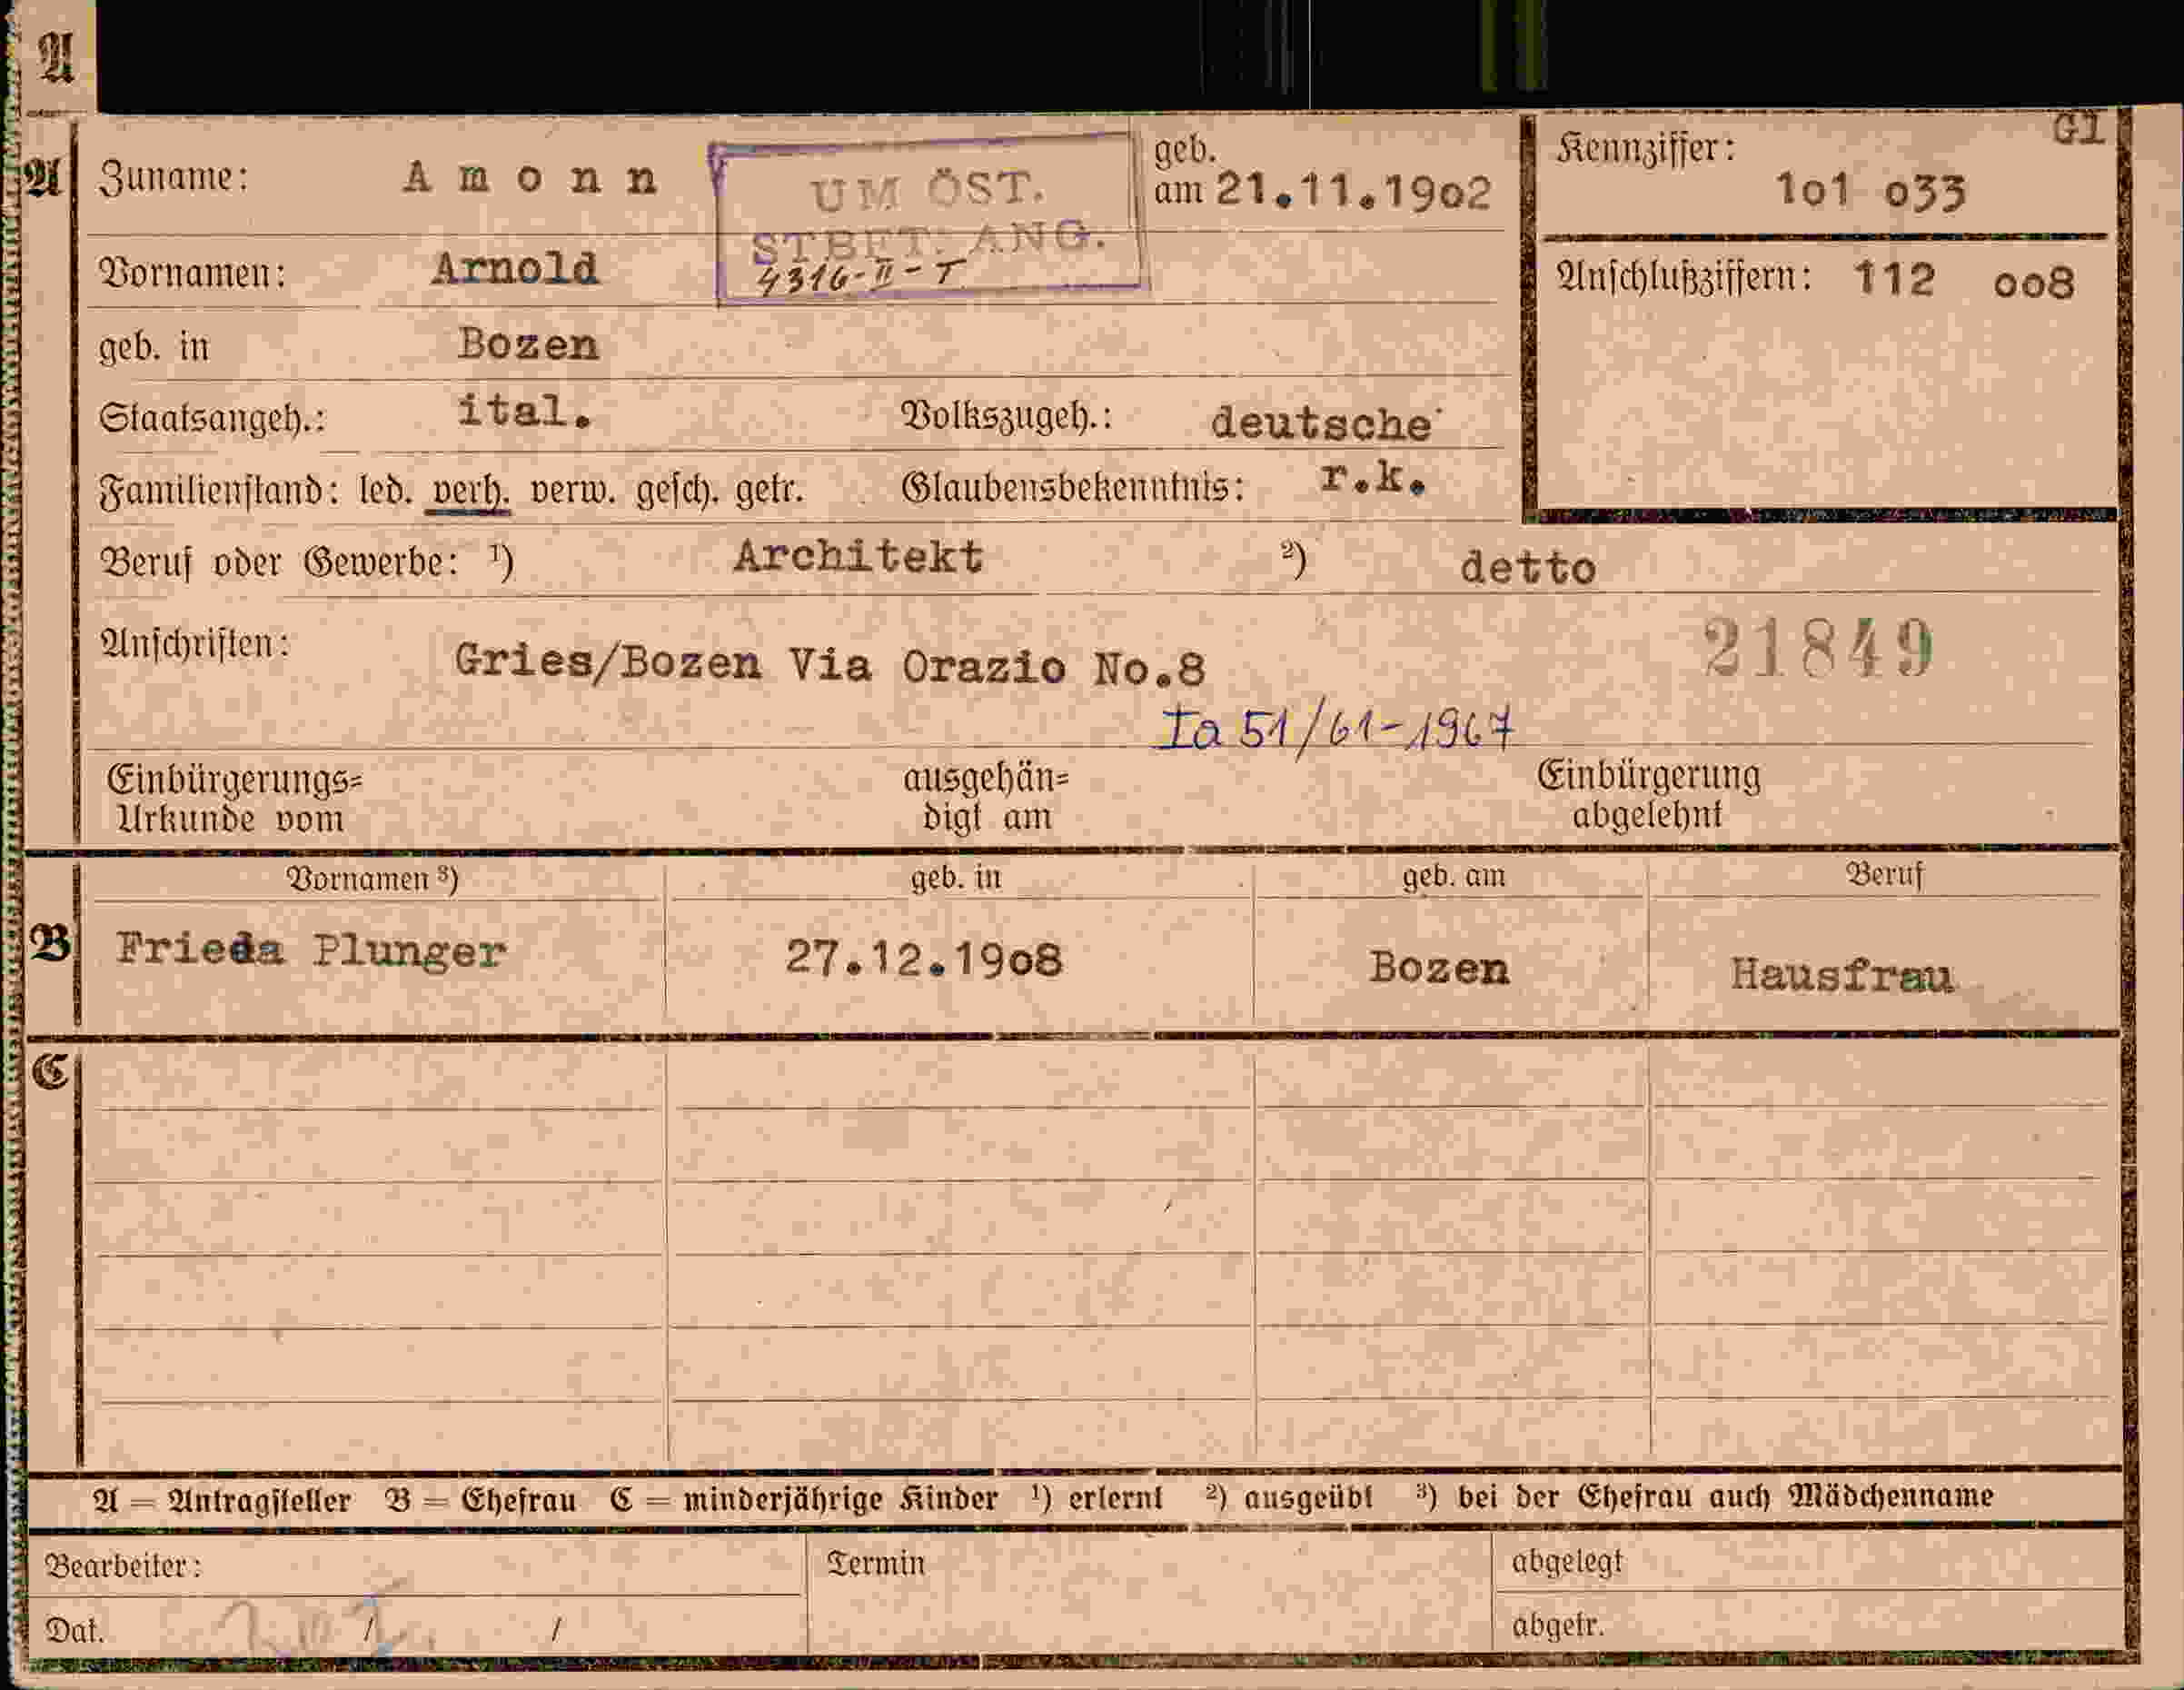 A
GI
A Zuname: Amonn geb. am 21.11.1902 Kennziffer: 101 033
UM ÖST.
STBFT. ANG.
4316-II-T
Vornamen: Arnold Anschlußziffern: 112 008
geb. in Bozen
Staatsangeh.: ital. Volkszugeh.: deutsche
Familienstand: led. verh. verw. gesch. getr. Glaubensbekenntnis: r.k.
Beruf oder Gewerbe: ¹) Architekt ²) detto
Anschriften: Gries/Bozen Via Orazio No.8 21849
Ia 51/61-1967
Einbürgerungs= ausgehän= Einbürgerung
Urkunde vom digt am abgelehnt
Vornamen ³) geb. in geb. am Beruf
B Frieda Plunger 27.12.1908 Bozen Hausfrau
C
A = Antragsteller B = Ehefrau C = minderjährige Kinder ¹) erlernt ²) ausgeübt ³) bei der Ehefrau auch Mädchenname
Bearbeiter: Termin abgelegt
Dat. / / abgetr.